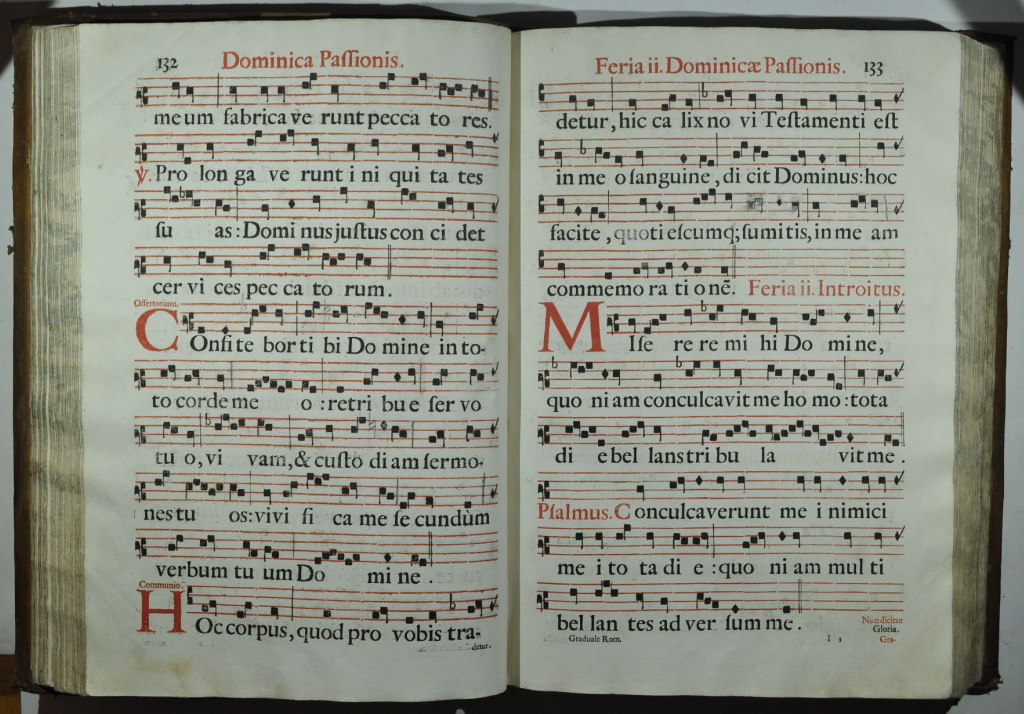 132 Dominica Paſſionis.
meum fabricave runt pecca to res.
℣. Pro lon ga ve runt i ni qui ta tes
ſu as: Domi nus juſtus con ci det
cer vi ces pec ca to rum.
Offertorium.
COnfi te bor ti bi Do mine in to-
to corde me o : retri bu e ſer vo
tu o, vi vam, & cuſto di am ſermo-
nes tu os: vivi fi ca me ſe cundùm
verbum tu um Do mi ne .
Communio.
HOc corpus, quod pro vobis tra-
detur.
Feria ii. Dominicæ Paſſionis. 133
detur, hic ca lix no vi Teſtamenti eſt
in me o ſanguine, di cit Dominus: hoc
facite, quoti eſcumq; ſumitis, in me am
commemo ra ti onē. Feria ii. Introitus.
MIſe re re mi hi Do mine,
quo ni am conculcavit me ho mo: tota
di e bel lans tri bu la vit me .
Pſalmus. Conculcaverunt me i nimici
me i to ta di e : quo ni am mul ti
bel lan tes ad ver ſum me .
Non dicitur
Gloria.
Graduale Rom. I 3 Gra-